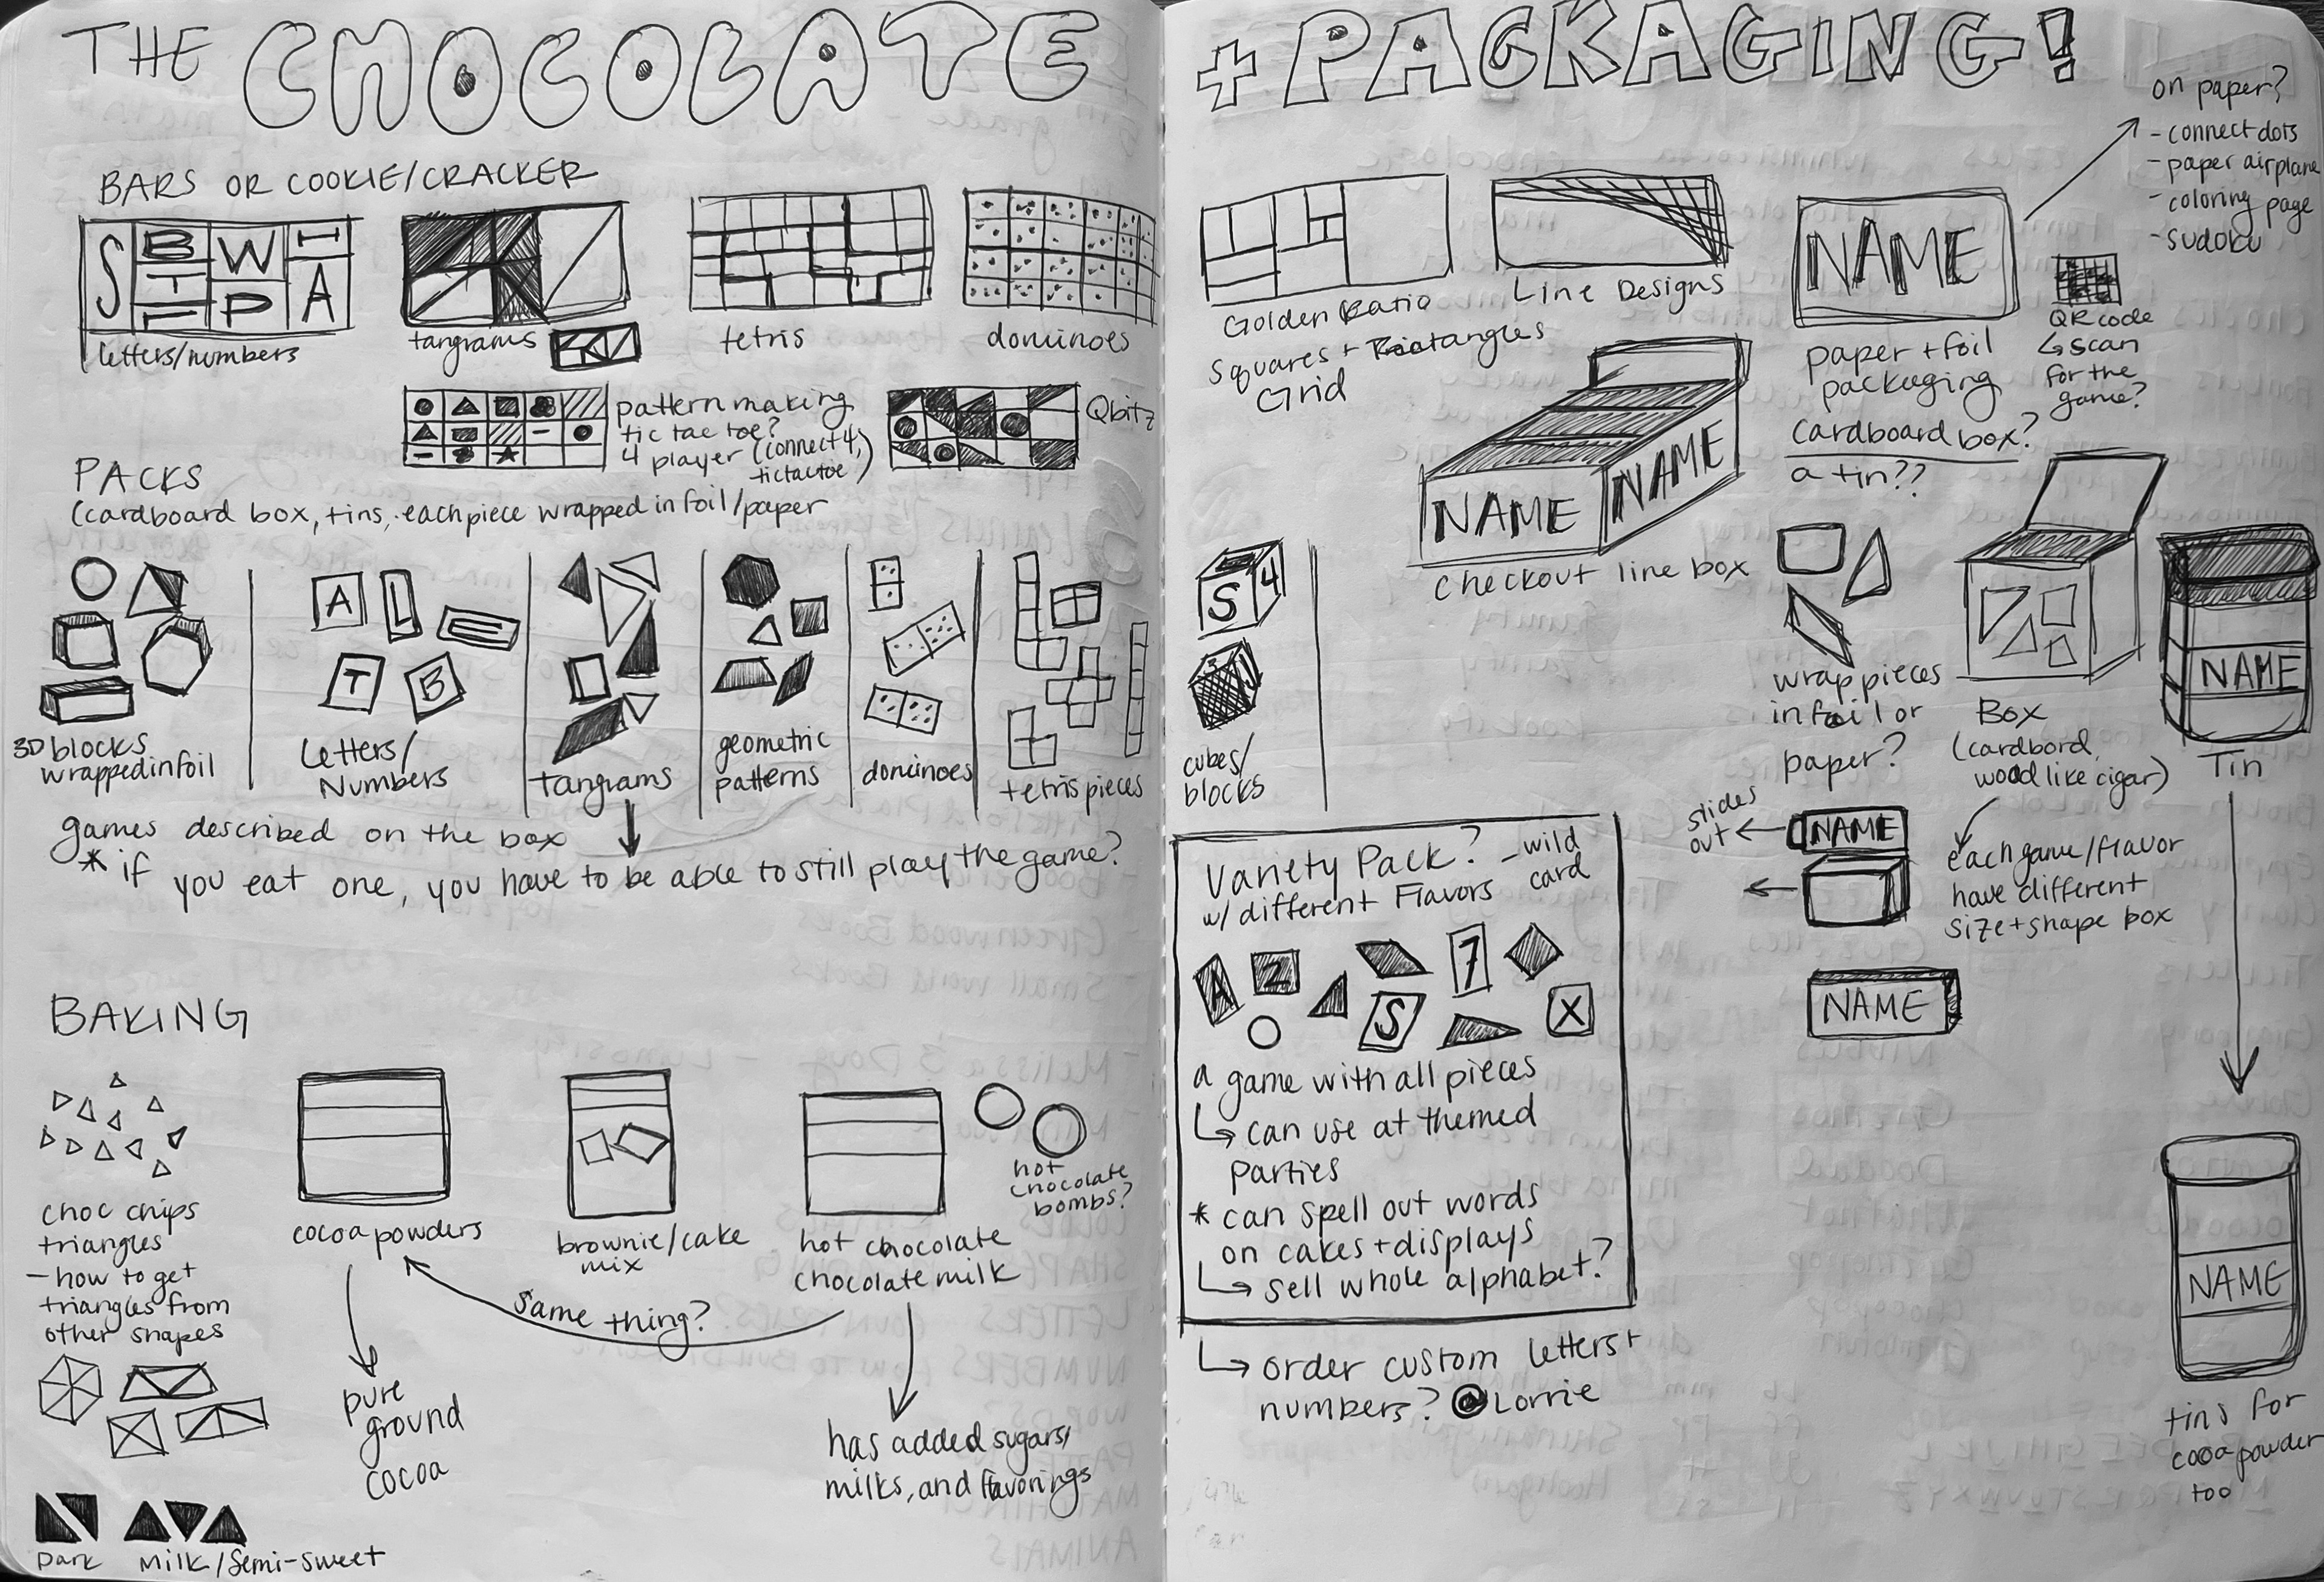 THE CHOCOLATE
BARS OR COOKIE/CRACKER
S B T W P H A
letters/numbers
tangrams
tetris
dominoes
pattern making
tic tac toe?
4 player (connect 4,
tictactoe)
Qbitz
PACKS
(cardboard box, tins, each piece wrapped in foil/paper
3D blocks
wrapped in foil
A L E
T B
Letters/
Numbers
tangrams
geometric
patterns
dominoes
tetris pieces
games described on the box
* if you eat one, you have to be able to still play the game?
BAKING
choc chips
triangles
- how to get
triangles from
other shapes
Dark
Milk/Semi-sweet
cocoa powders
pure
ground
cocoa
brownie/cake
mix
same thing?
hot chocolate
chocolate milk
hot
chocolate
bombs?
has added sugars,
milks, and flavorings
+ PACKAGING!
Golden Ratio
Squares + Rectangles
Grid
Line Designs
NAME
paper + foil
packaging
cardboard box?
a tin??
on paper?
- connect dots
- paper airplane
- coloring page
- sudoku
QR code
↳ scan
for the
game?
NAME NAME
checkout line box
S 4
cubes/
blocks
wrap pieces
in foil or
paper?
Box
(cardbord,
wood like cigar)
NAME
Tin
slides
out ←
NAME
each game/flavor
have different
size + shape box
NAME
Variety Pack? - wild
card
w/ different Flavors
A 2 7
S X
a game with all pieces
↳ can use at themed
parties
* can spell out words
on cakes + displays
↳ sell whole alphabet?
↳ order custom letters +
numbers? @Lorrie
NAME
tins for
cocoa powder
too